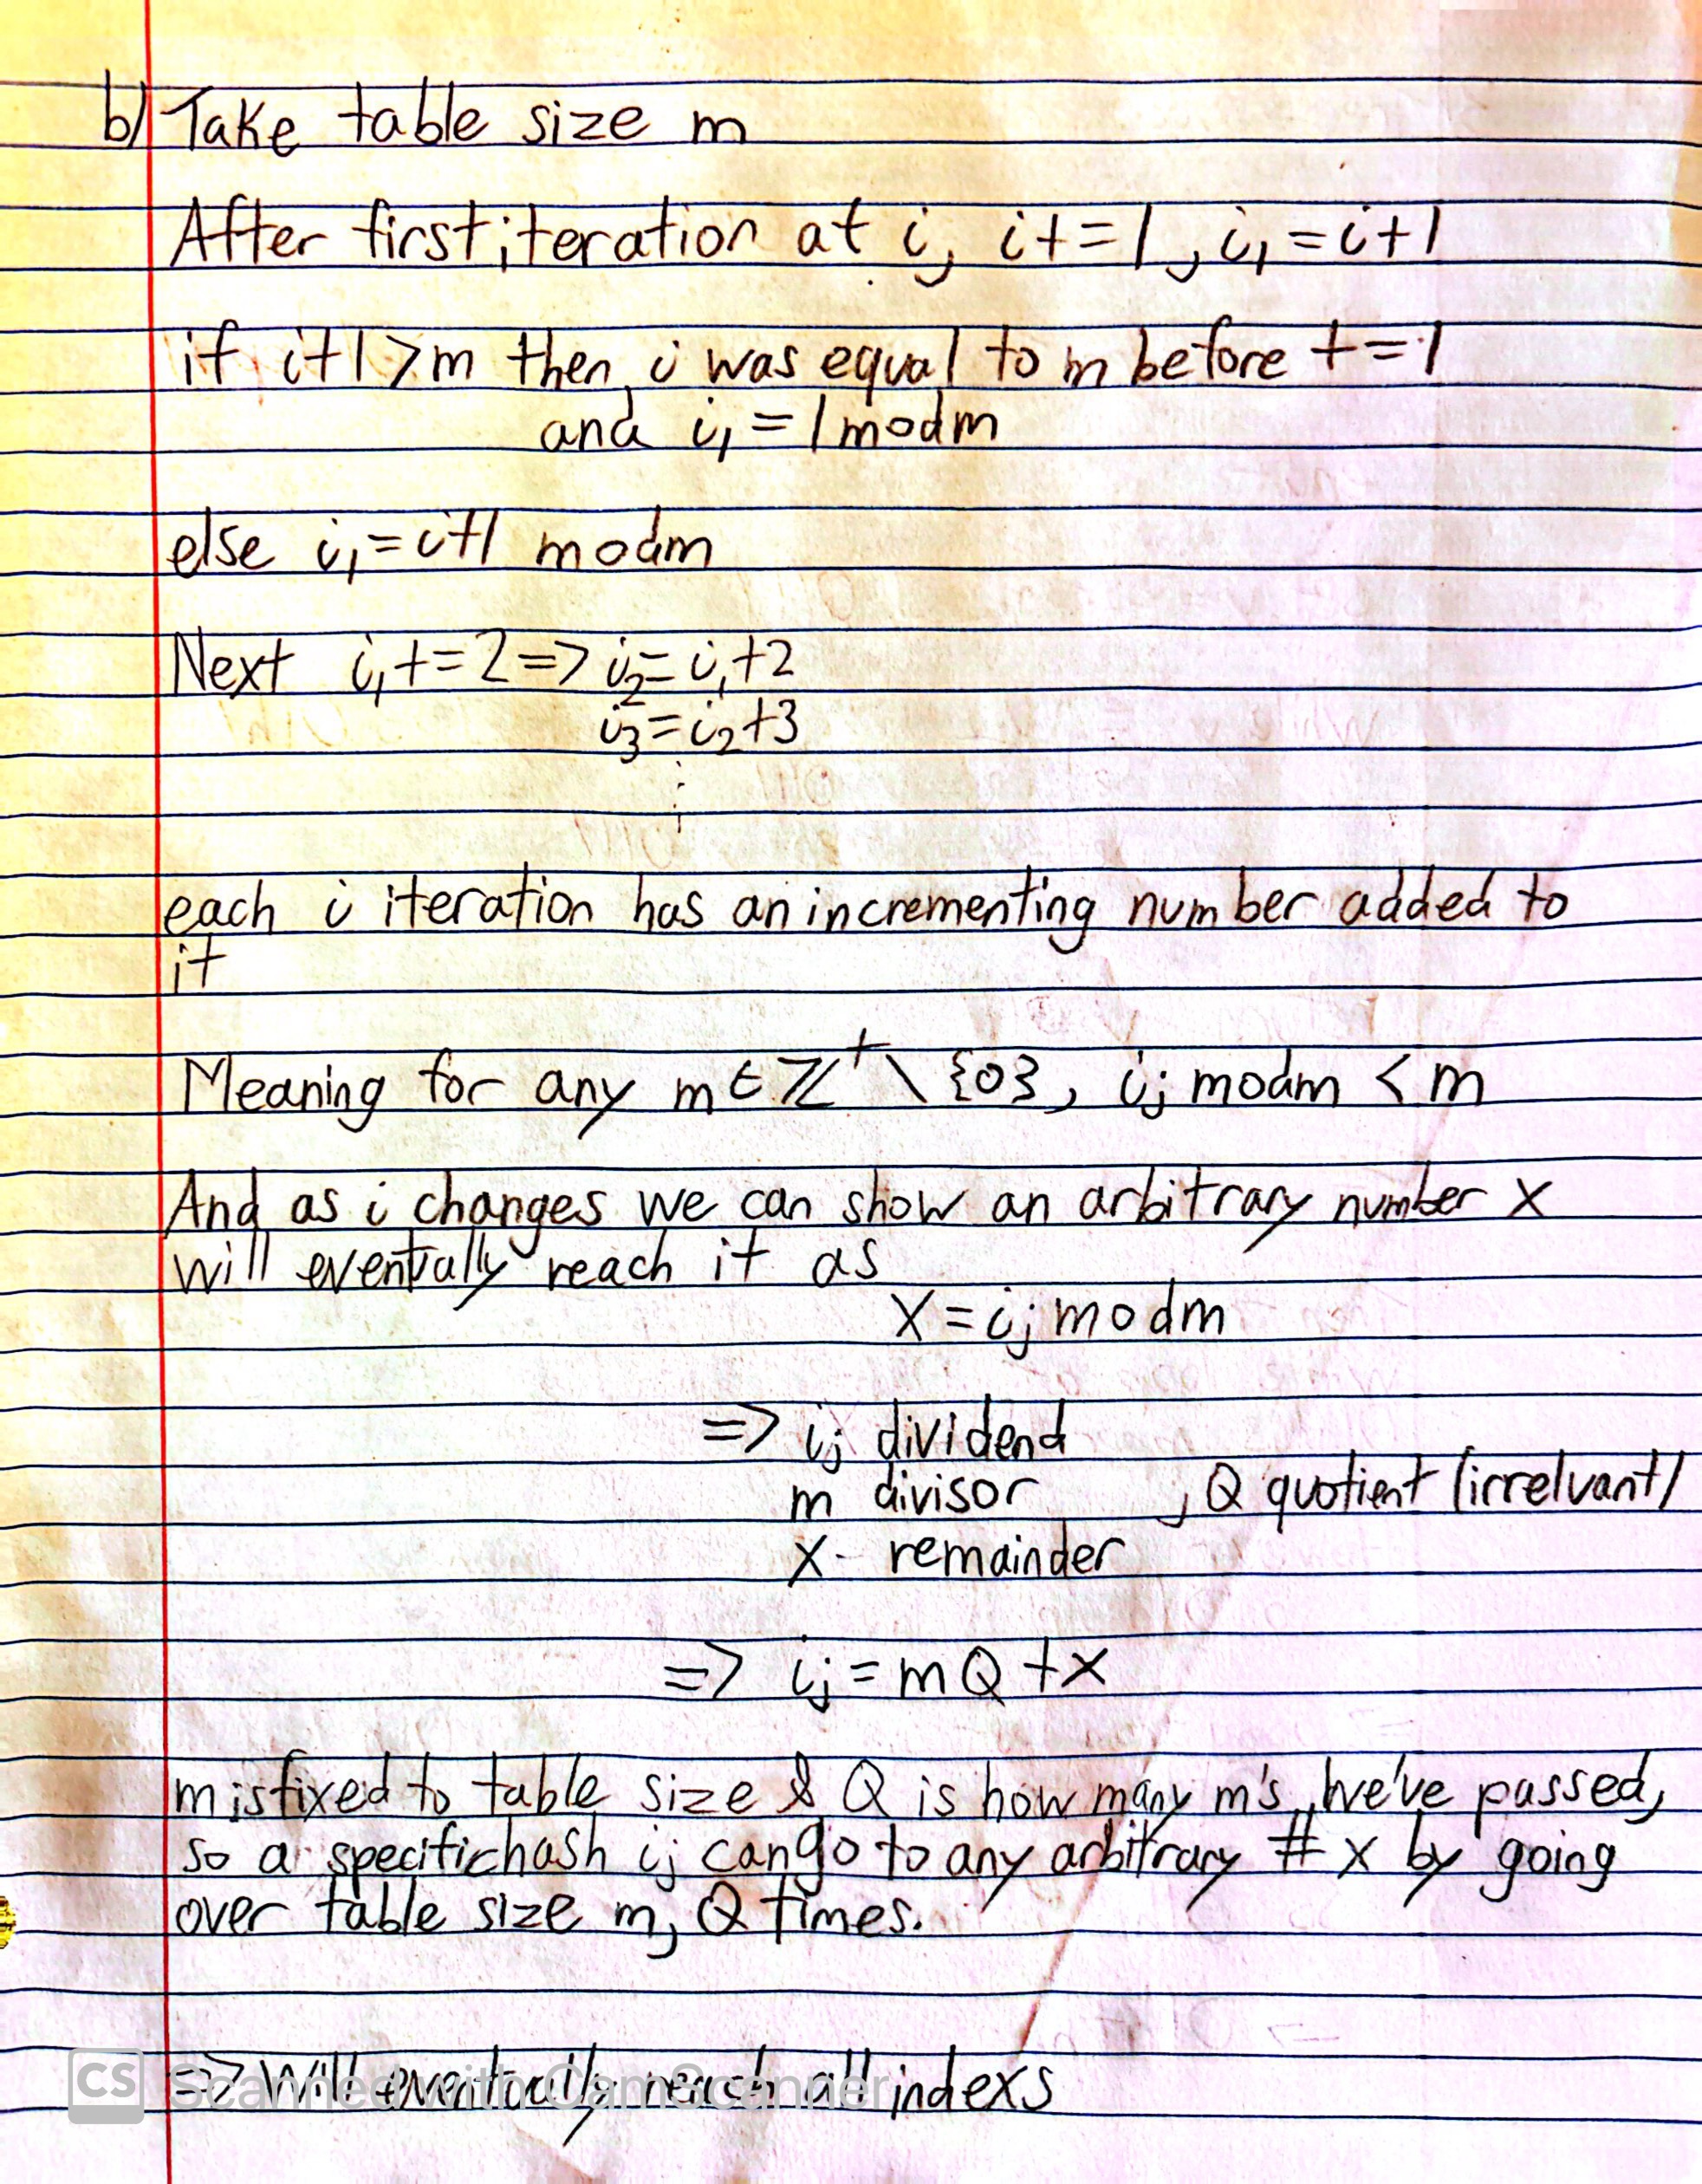 b) Take table size m
After first iteration at i, i+=1, i₁=i+1
if i+1>m then i was equal to m before +=1
and i₁=1modm
else i₁=i+1 modm
Next i₁+=2=> i₂=i₁+2
i₃=i₂+3
⋮
each i iteration has an incrementing number added to
it
Meaning for any m∈ℤ⁺\{0}, iⱼ modm < m
And as i changes we can show an arbitrary number x
will eventually reach it as
X=iⱼ modm
=> iⱼ dividend
m divisor , Q quotient (irrelvant)
x - remainder
=> iⱼ=mQ+x
m is fixed to table size & Q is how many m's we've passed,
so a specific hash iⱼ can go to any arbitrary # x by going
over table size m, Q times.
=> Will eventually reach all indexs
CS Scanned with CamScanner